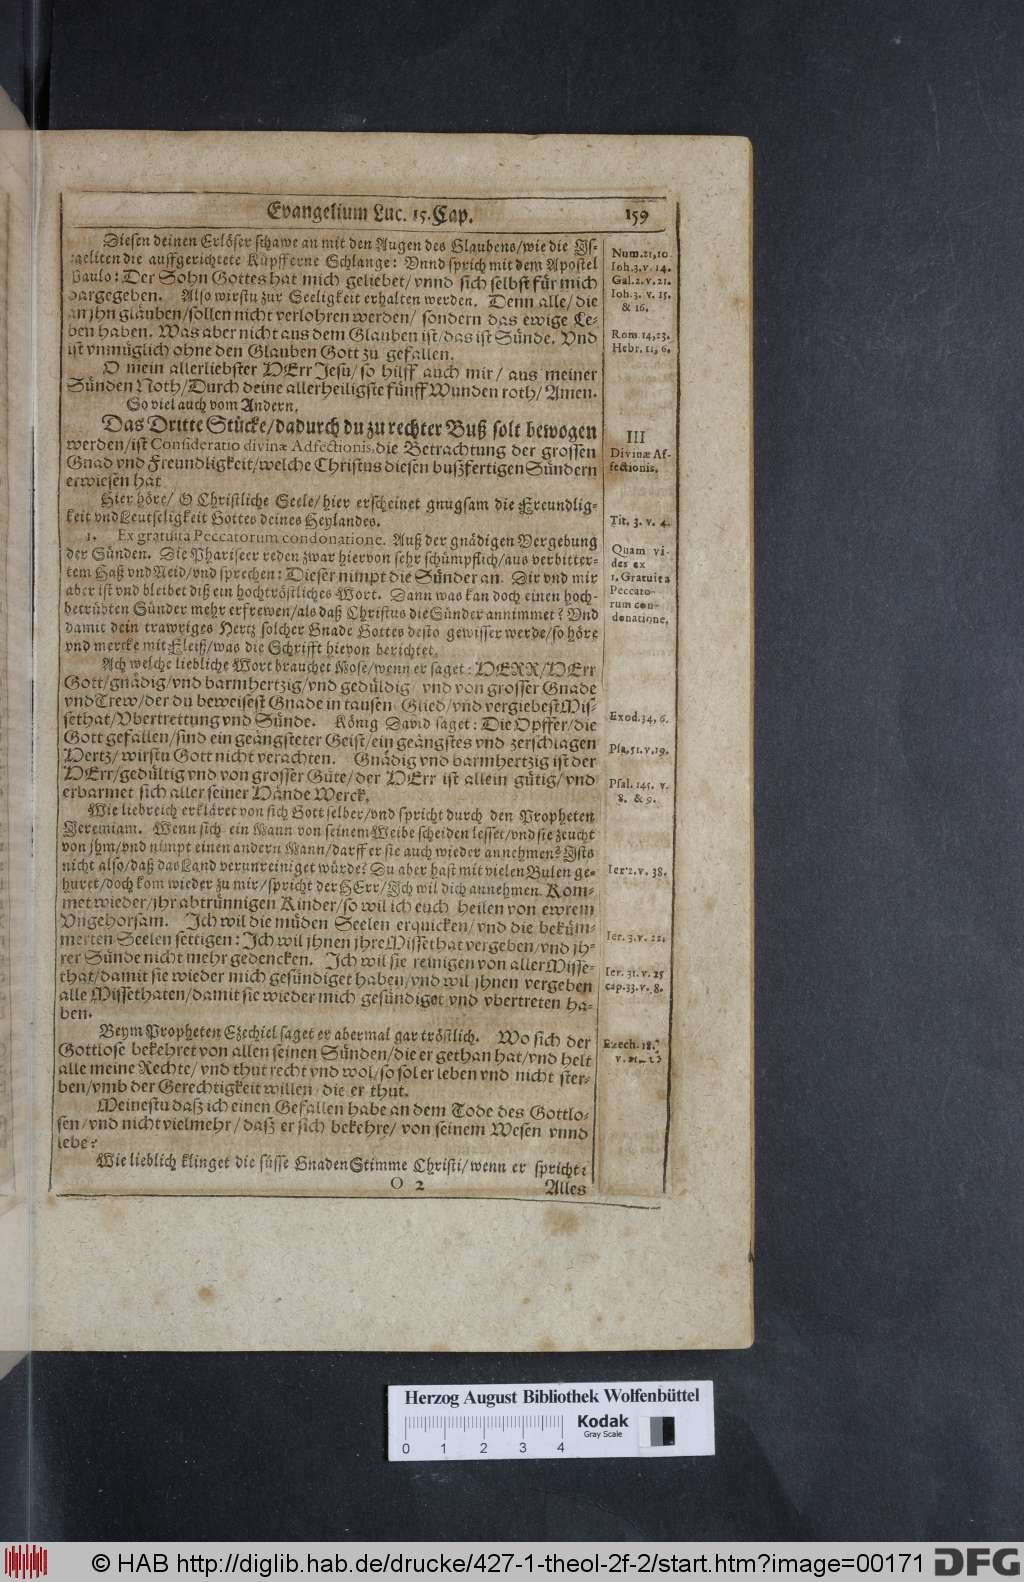 Evangelium Luc. 15. Cap. 159
Diesen deinen Erlöser schawe an mit den Augen des Glaubens/ wie die Is-
raeliten die auffgerichtete Küpfferne Schlange: Vnnd sprich mit dem Apostel
Paulo: Der Sohn Gottes hat mich geliebet/ vnnd sich selbst für mich
dargegeben. Also wirstu zur Seeligkeit erhalten werden. Denn alle/ die
an jhn glauben/ sollen nicht verlohren werden/ sondern das ewige Le-
ben haben. Was aber nicht aus dem Glauben ist/ das ist Sünde. Vnd
ist vnmüglich ohne den Glauben Gott zu gefallen.
O mein allerliebster HErr Jesu/ so hilff auch mir/ aus meiner
Sünden Noth/ Durch deine allerheiligste fünff Wunden roth/ Amen.
So viel auch vom Andern.
Das Dritte Stücke/ dadurch du zu rechter Buß solt bewogen
werden/ ist Consideratio divinæ Adfectionis, die Betrachtung der grossen
Gnad vnd Freundligkeit/ welche Christus diesen bußfertigen Sündern
erwiesen hat
Hier höre/ O Christliche Seele/ hier erscheinet gnugsam die Freundlig-
keit vnd Leutseligkeit Gottes deines Heylandes.
1. Ex gratuita Peccatorum condonatione. Auß der gnädigen Vergebung
der Sünden. Die Phariseer reden zwar hiervon sehr schümpflich/ aus verbitter-
tem Haß vnd Neid/ vnd sprechen: Dieser nimpt die Sünder an. Dir vnd mir
aber ist vnd bleibet diß ein hochtröstliches Wort. Dann was kan doch einen hoch-
betrübten Sünder mehr erfrewen/ als daß Christus die Sünder annimmet? Vnd
damit dein trawriges Hertz solcher Gnade Gottes desto gewisser werde/ so höre
vnd mercke mit Fleiß/ was die Schrifft hievon berichtet.
Ach welche liebliche Wort brauchet Mose/ wenn er saget: HERR/ HErr
Gott/ gnädig/ vnd barmhertzig/ vnd gedüldig vnd von grosser Gnade
vnd Trew/ der du beweisest Gnade in tausen Glied/ vnd vergiebest Mis-
sethat/ Vbertrettung vnd Sünde. König David saget: Die Opffer/ die
Gott gefallen/ sind ein geängsteter Geist/ ein geängstes vnd zerschlagen
Hertz/ wirstu Gott nicht verachten. Gnädig vnd barmhertzig ist der
HErr/ gedültig vnd von grosser Güte/ der HErr ist allein gütig/ vnd
erbarmet sich aller seiner Hände Werck.
Wie liebreich erkläret von sich Gott selber/ vnd spricht durch den Propheten
Jeremiam. Wenn sich ein Mann von seinem Weibe scheiden lesset/ vnd sie zeucht
von jhm/ vnd nimpt einen andern Mann/ darff er sie auch wieder annehmen? Ists
nicht also/ daß das Land verunreiniget würde? Du aber hast mit vielen Bulen ge-
huret/ doch kom wieder zu mir/ spricht der HErr/ Ich wil dich annehmen. Kom-
met wieder/ jhr abtrünnigen Kinder/ so wil ich euch heilen von ewrem
Vngehorsam. Ich wil die müden Seelen erquicken/ vnd die beküm-
merten Seelen settigen: Ich wil jhnen jhre Missethat vergeben/ vnd jh-
rer Sünde nicht mehr gedencken. Ich wil sie reinigen von aller Misse-
that/ damit sie wieder mich gesündiget haben/ vnd wil jhnen vergeben
alle Missethaten/ damit sie wieder mich gesündiget vnd vbertreten ha-
ben.
Beym Propheten Ezechiel saget er abermal gar tröstlich. Wo sich der
Gottlose bekehret von allen seinen Sünden/ die er gethan hat/ vnd helt
alle meine Rechte/ vnd thut recht vnd wol/ so sol er leben vnd nicht ster-
ben/ vmb der Gerechtigkeit willen die er thut.
Meinestu daß ich einen Gefallen habe an dem Tode des Gottlo-
sen/ vnd nicht vielmehr/ daß er sich bekehre/ von seinem Wesen vnnd
lebe?
Wie lieblich klinget die süsse Gnaden Stimme Christi/ wenn er spricht:
O 2 Alles
Num. 21, 10.
Ioh. 3. v. 14.
Gal. 2. v. 21.
Ioh. 3. v. 15.
& 16.
Rom. 14, 23.
Hebr. 11, 6.
III
Divinæ Af-
fectionis.
Tit. 3. v. 4.
Quam vi-
des ex
1. Gratuita
Peccato-
rum con-
donatione.
Exod. 34, 6.
Psa. 51. v. 19.
Psal. 145. v.
8. & 9.
Ier. 2. v. 38.
Ier. 3. v. 22.
Ier. 31. v. 25
cap. 33. v. 8.
Ezech. 18.
Herzog August Bibliothek Wolfenbüttel
0 1 2 3 4
Kodak
Gray Scale
© HAB http://diglib.hab.de/drucke/427-1-theol-2f-2/start.htm?image=00171
DFG